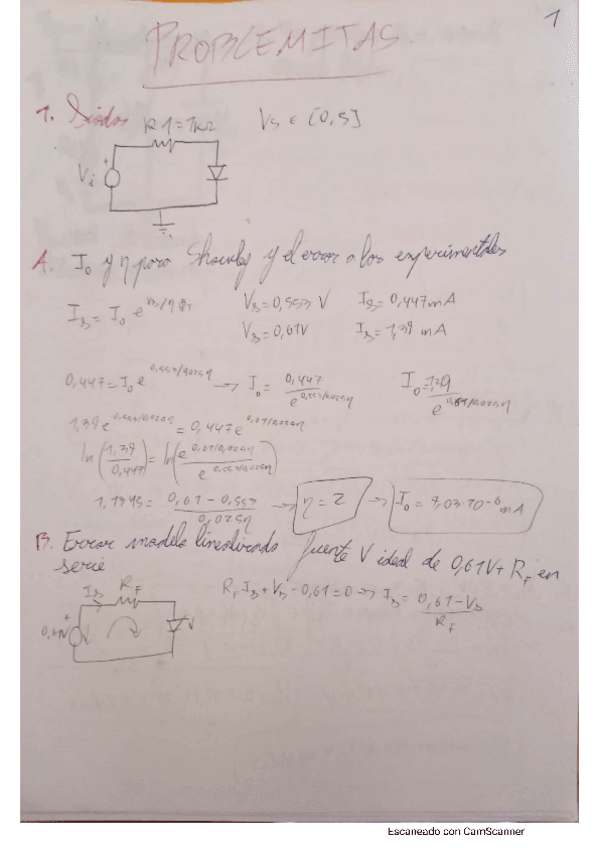 1
PROBLEMITAS.
1. Diodos R1=1kΩ Vs ∈ [0,5]
Vi
A. I₀ y η para Shockley y el error a los experimentales
I_D = I₀ e
V_D=0,553 V I_D=0,447mA
V_D=0,61V I_D=1,39 mA
0,447=I₀e^(0,553/0,025η) → I₀= 0,447 / e^(0,553/0,025η) I₀=
1,39 e^(0,553/0,025η) = 0,447e^(0,61/0,025η)
ln(1,39/0,447)=ln(e^(0,61/0,025η) / e^(0,553/0,025η))
1,1345= (0,61-0,553)/(0,025η) → η=2 → I₀=7,03·10⁻⁶ mA
B. Error modelo linealizado fuente V ideal de 0,61V+ R_F en
serie
I_D R_F R_F I_D+V_D-0,61=0 → I_D= (0,61-V_D)/R_F
0,61V
Escaneado con CamScanner